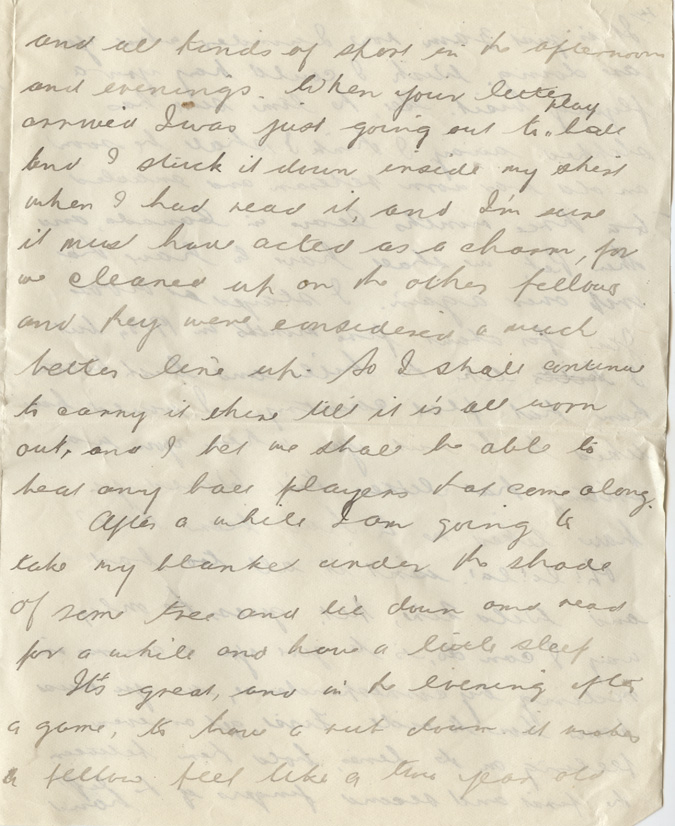 and all kinds of sport in the afternoon
and evenings. When your letter
arrived I was just going out to play ball
and I stuck it down inside my shirt
when I had read it, and I'm sure
it must have acted as a charm, for
we cleaned up on the other fellows
and they were considered a much
better line up. So I shall continue
to carry it there till it is all worn
out, and I bet we shall be able to
beat any ball players that come along.
After a while I am going to
take my blanket under the shade
of some tree and lie down and read
for a while and have a little sleep
It's great, and in the evening after
a game, to have a rub down it makes
a fellow feel like a two year old